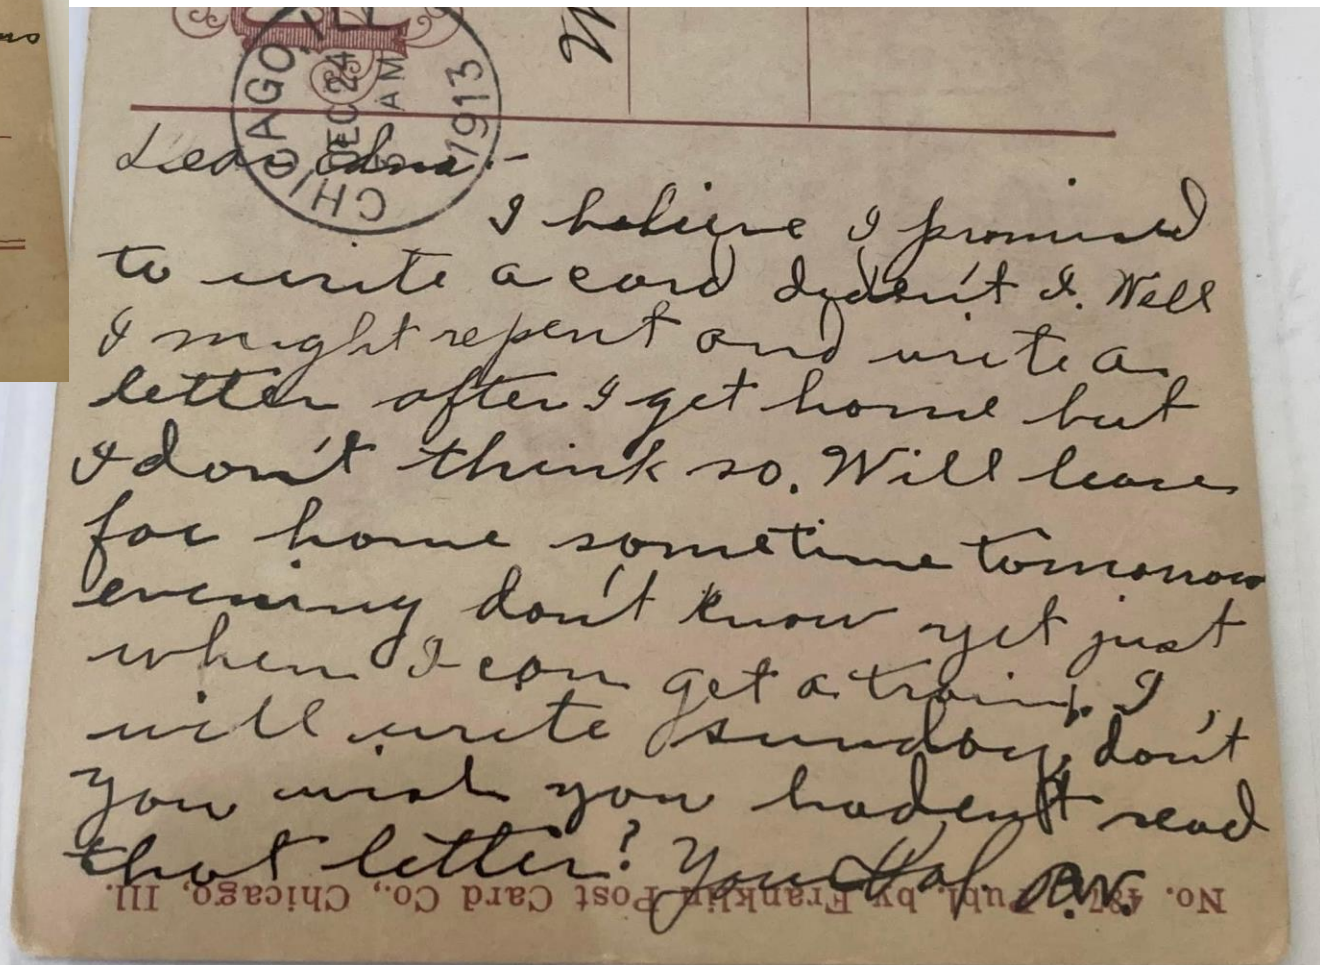 CHICAGO, ILL
DEC 24
5 AM
1913
Dear Edna:-
I believe I promised
to write a card diden't I. Well
I might repent and write a
letter after I get home but
I don't think so. Will leave
for home sometime tomorrow
evening don't know yet just
when I can get a train, I
will write sunday, don't
you wish you haden't read
that letter? Your Hal. B.W.
Publ. by Franklin Post Card Co., Chicago, Ill.